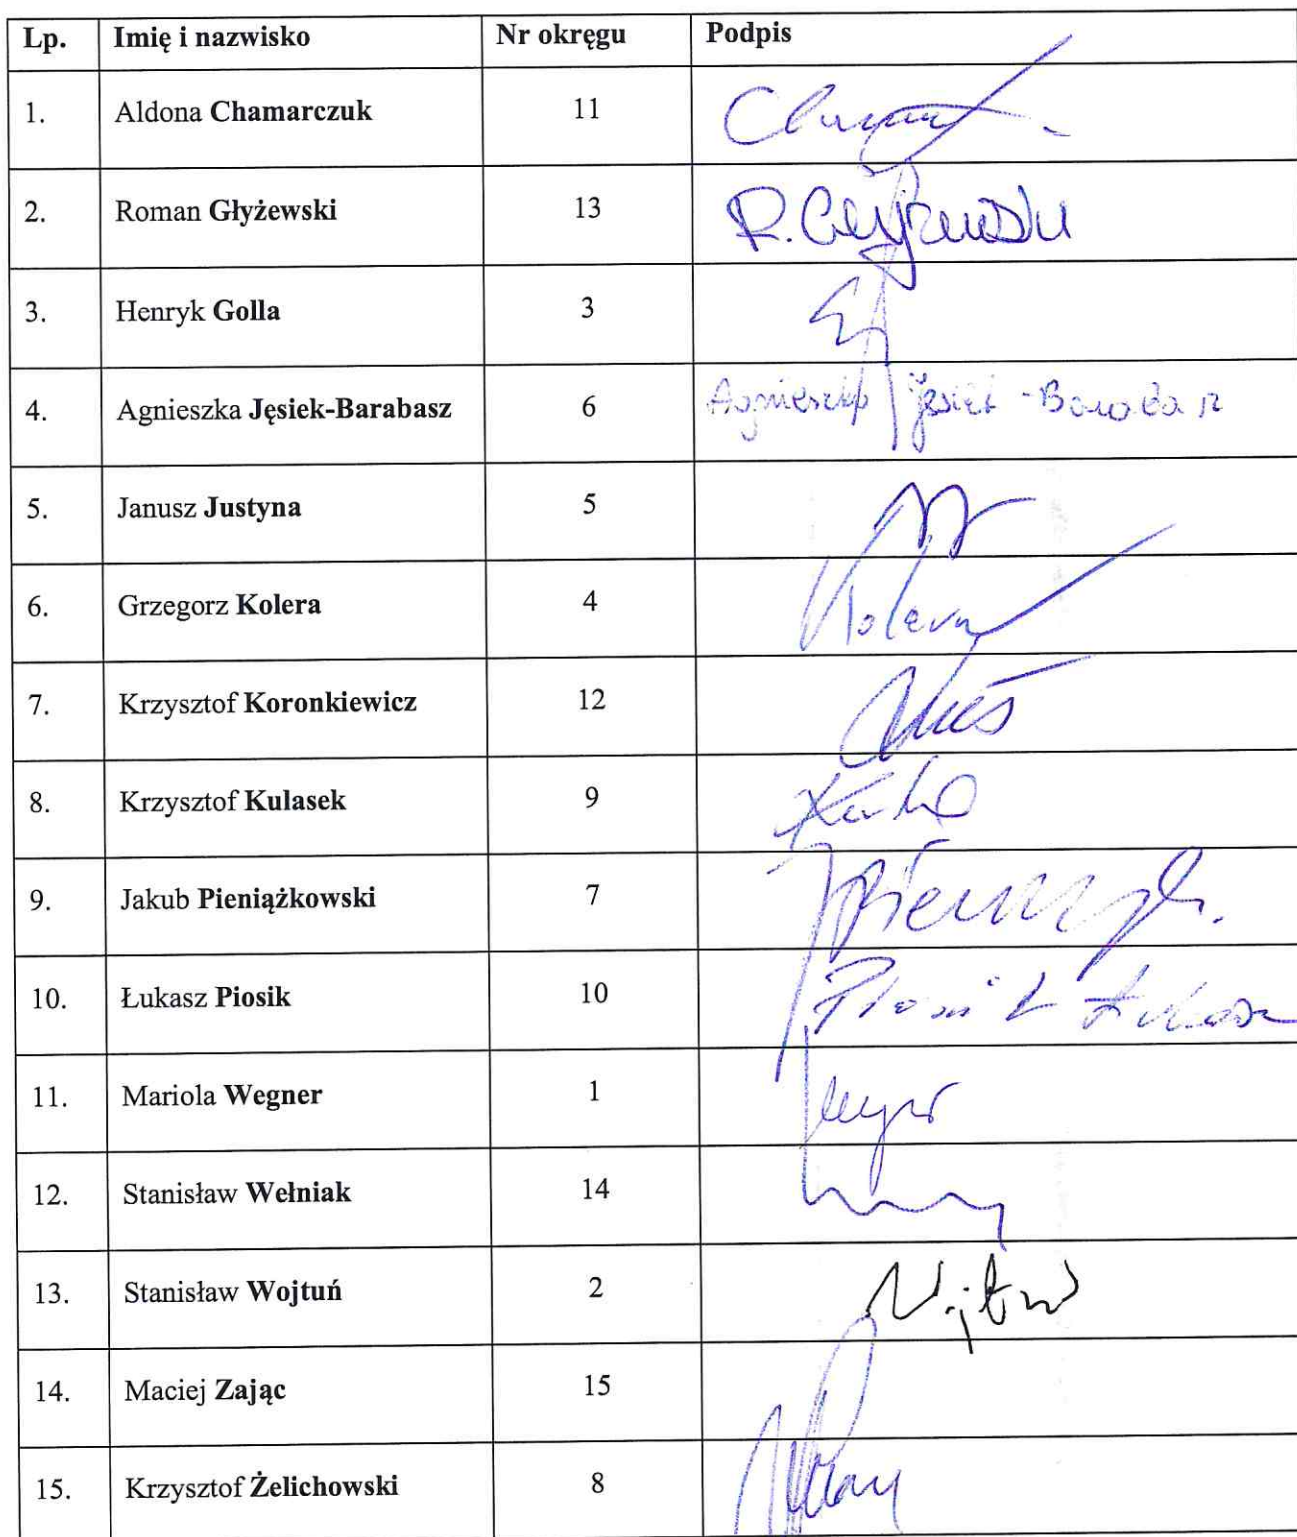 Lp. Imię i nazwisko Nr okręgu Podpis
1. Aldona Chamarczuk 11
2. Roman Głyżewski 13 R.
3. Henryk Golla 3
4. Agnieszka Jęsiek-Barabasz 6 Agnieszka Jęsiek-Barabasz
5. Janusz Justyna 5
6. Grzegorz Kolera 4 Kolera
7. Krzysztof Koronkiewicz 12
8. Krzysztof Kulasek 9
9. Jakub Pieniążkowski 7
10. Łukasz Piosik 10 Piosik Łukasz
11. Mariola Wegner 1
12. Stanisław Wełniak 14
13. Stanisław Wojtuń 2
14. Maciej Zając 15
15. Krzysztof Żelichowski 8